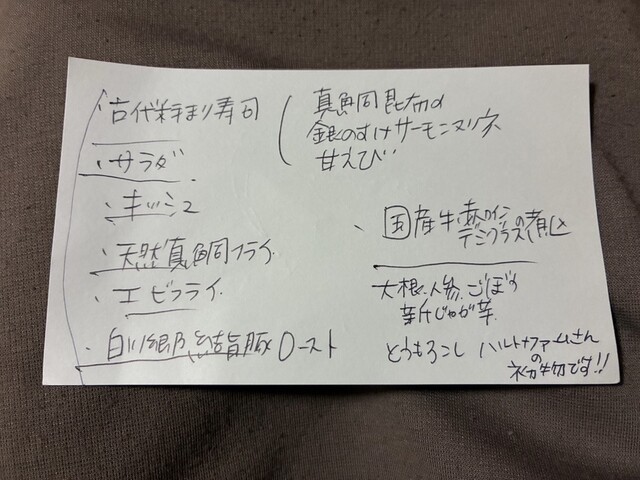 ・古代米手まり寿司
真鯛昆布〆
銀のすけサーモンマリネ
甘えび
・サラダ
・キッシュ
・天然真鯛フライ
・エビフライ
・白川郷結旨豚ロースト
・国産牛赤ワイン
デミグラスの煮込
大根、人参、ごぼう
新じゃが芋
とうもろこし ハルトファームさん
の
初物です!!